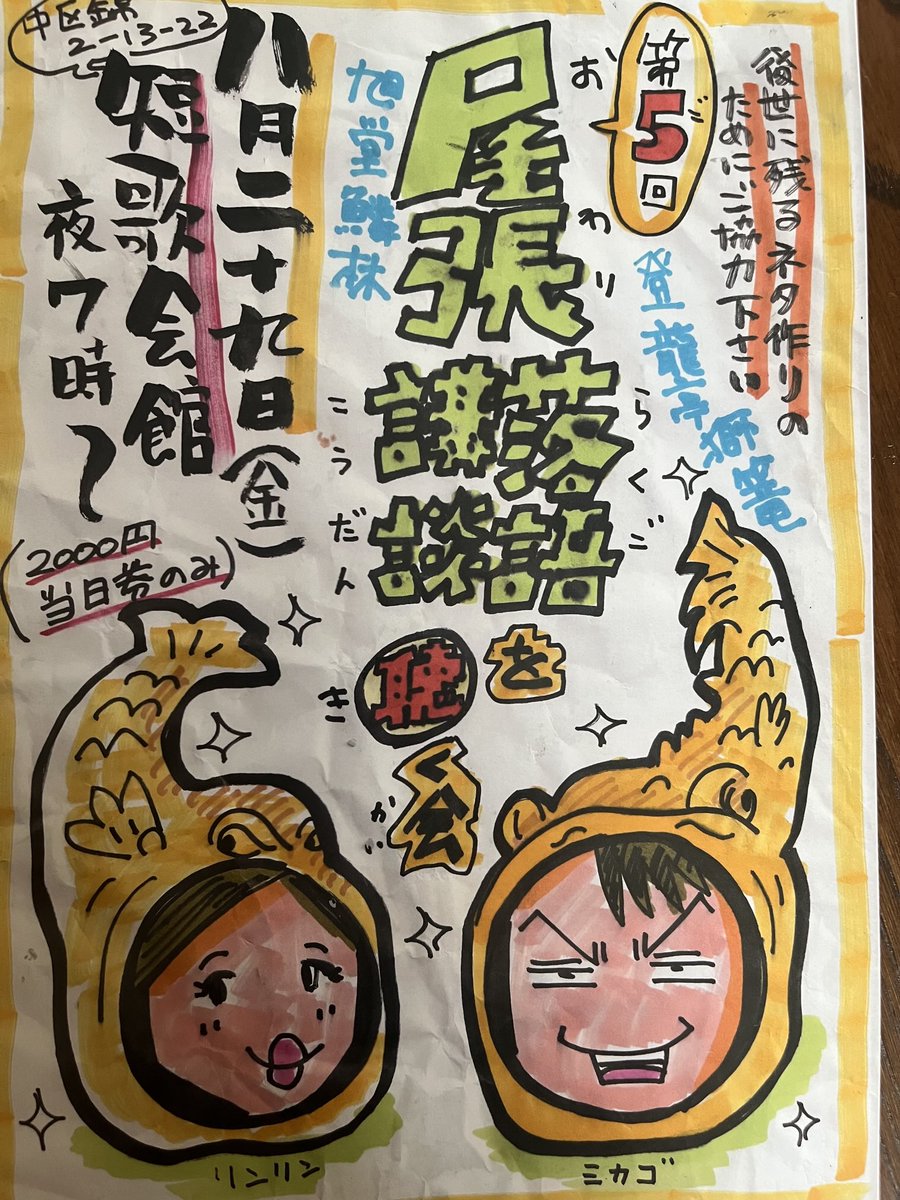 後世に残るネタ作りの
ためにご協力下さい
第5回
ご
登龍亭獅篭
尾張
おわり
落語
らくご
講談
こうだん
を
聴
き
く会
かい
旭堂鱗林
八月二十九日(金)
短歌会館
夜7時〜
中区錦
2-13-22
(2000円
当日券のみ)
リンリン
ミカゴ